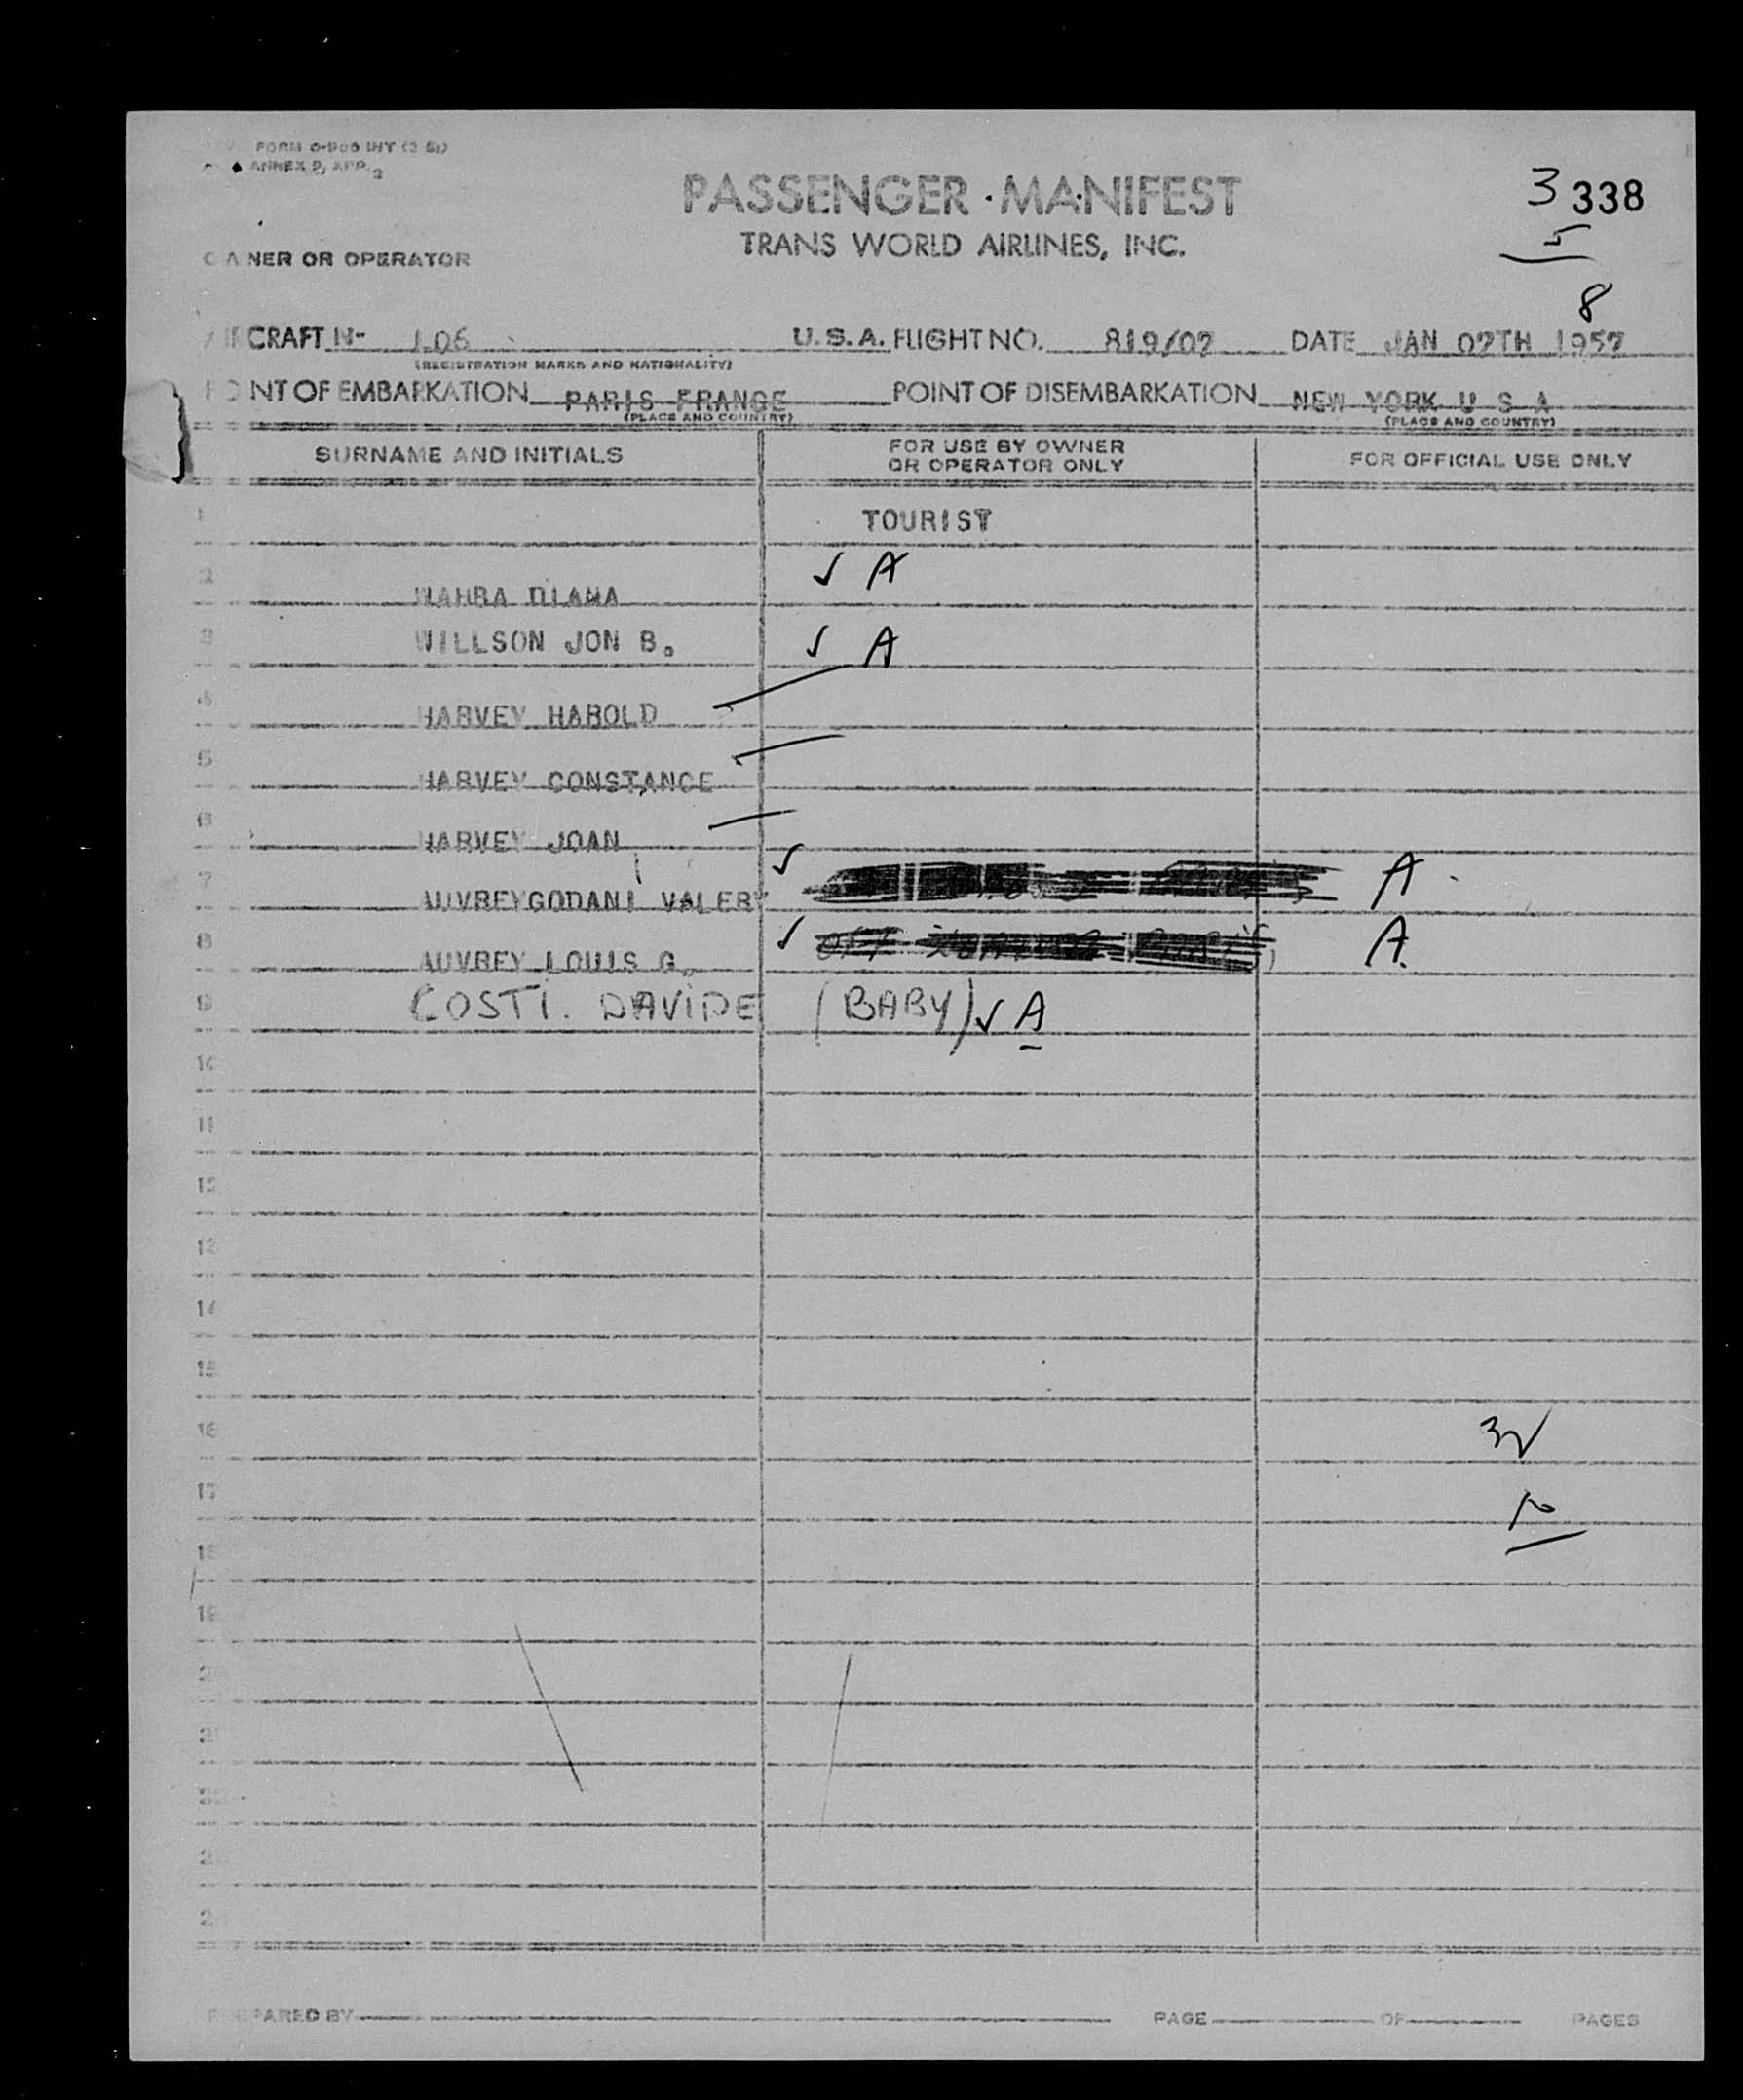 FORM O-906 INT (2-51)
ANNEX 9, APP. 2
PASSENGER MANIFEST
3 338
TRANS WORLD AIRLINES, INC.
5
OWNER OR OPERATOR
8
AIRCRAFT N- 106 U.S.A. FLIGHT NO. 819/07 DATE JAN 07TH 1957
(REGISTRATION MARKS AND NATIONALITY)
POINT OF EMBARKATION PARIS FRANCE POINT OF DISEMBARKATION NEW YORK U S A
(PLACE AND COUNTRY) (PLACE AND COUNTRY)
SURNAME AND INITIALS FOR USE BY OWNER OR OPERATOR ONLY FOR OFFICIAL USE ONLY
1 TOURIST
2 DIANA ✓ A
3 WILLSON JON B. ✓ A
4 HARVEY HAROLD
5 HARVEY CONSTANCE
6 HARVEY JOAN
7 AUVREYGODANI VALERY ✓ A
8 AUVREY LOUIS G. ✓ A.
9 COSTI. DAVIDE (BABY) ✓ A
10
11
12
13
14
15
16
17
18
19
PREPARED BY PAGE OF PAGES